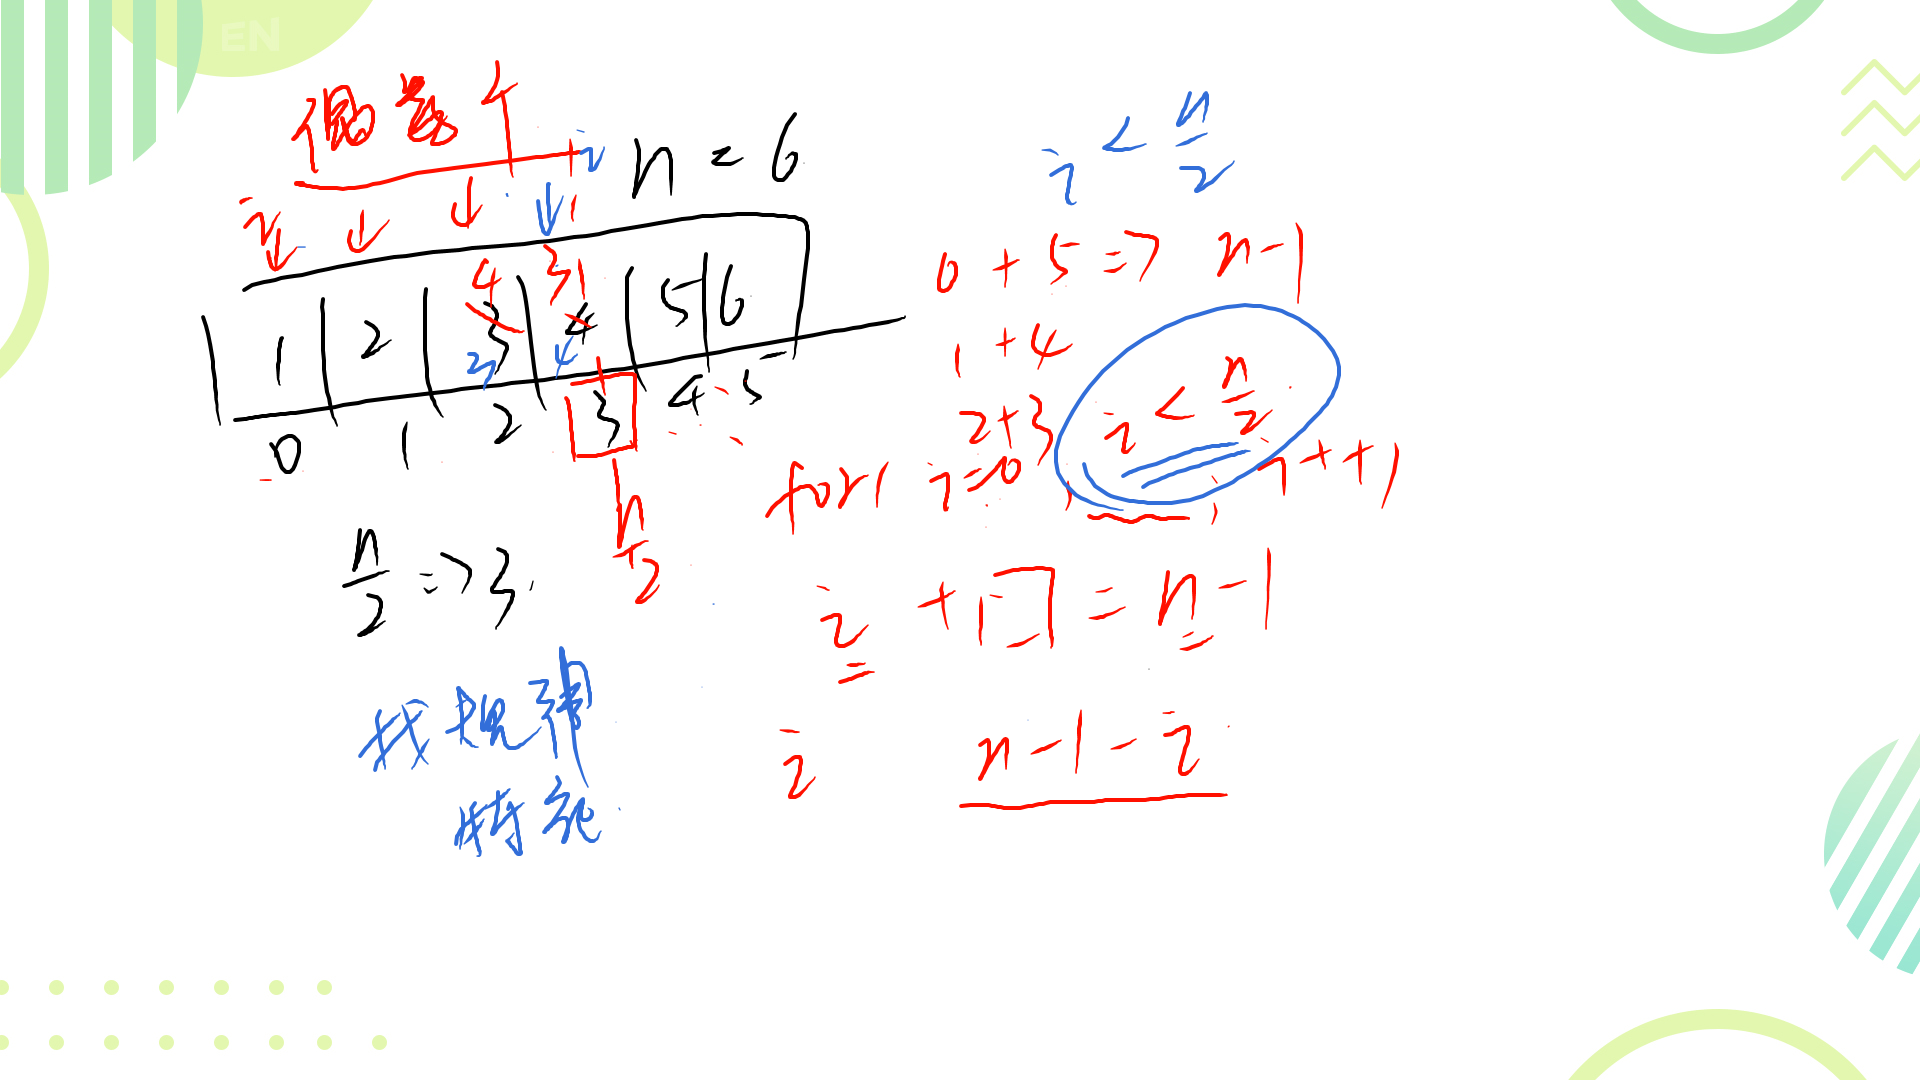 EN
偶数个
i
n = 6
i < n/2
i
4 3
1 2 3 4 5 6
3 4
0 1 2 3 4 5
n/2
n/2 => 3
找规律
特
0 + 5 => n-1
1 + 4
2+3
for( i=0 ; i < n/2 ; i++)
i + □ = n-1
i n-1-i